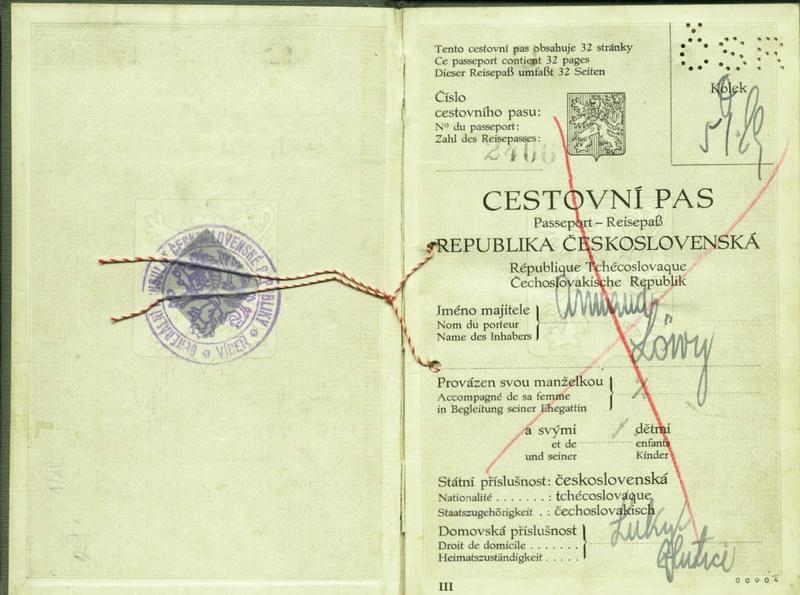 GENERÁLNÍ KONSULÁT ČESKOSLOVENSKÉ REPUBLIKY
VÍDEŇ
Tento cestovní pas obsahuje 32 stránky
Ce passeport contient 32 pages
Dieser Reisepaß umfaßt 32 Seiten
ČSR
Kolek
Číslo
cestovního pasu:
Nº du passeport:
Zahl des Reisepasses:
2406
CESTOVNÍ PAS
Passeport – Reisepaß
REPUBLIKA ČESKOSLOVENSKÁ
République Tchécoslovaque
Čechoslovakische Republik
Jméno majitele
Nom du porteur
Name des Inhabers
Armand
Löwy
Provázen svou manželkou
Accompagné de sa femme
in Begleitung seiner Ehegattin
a svými dětmi
et de enfants
und seiner Kinder
Státní příslušnost: československá
Nationalité . . . . . . . : tchécoslovaque
Staatszugehörigkeit . . : čechoslovakisch
Domovská příslušnost
Droit de domicile . . . . . . .
Heimatszuständigkeit . . . . .
Žlutice
III
00904